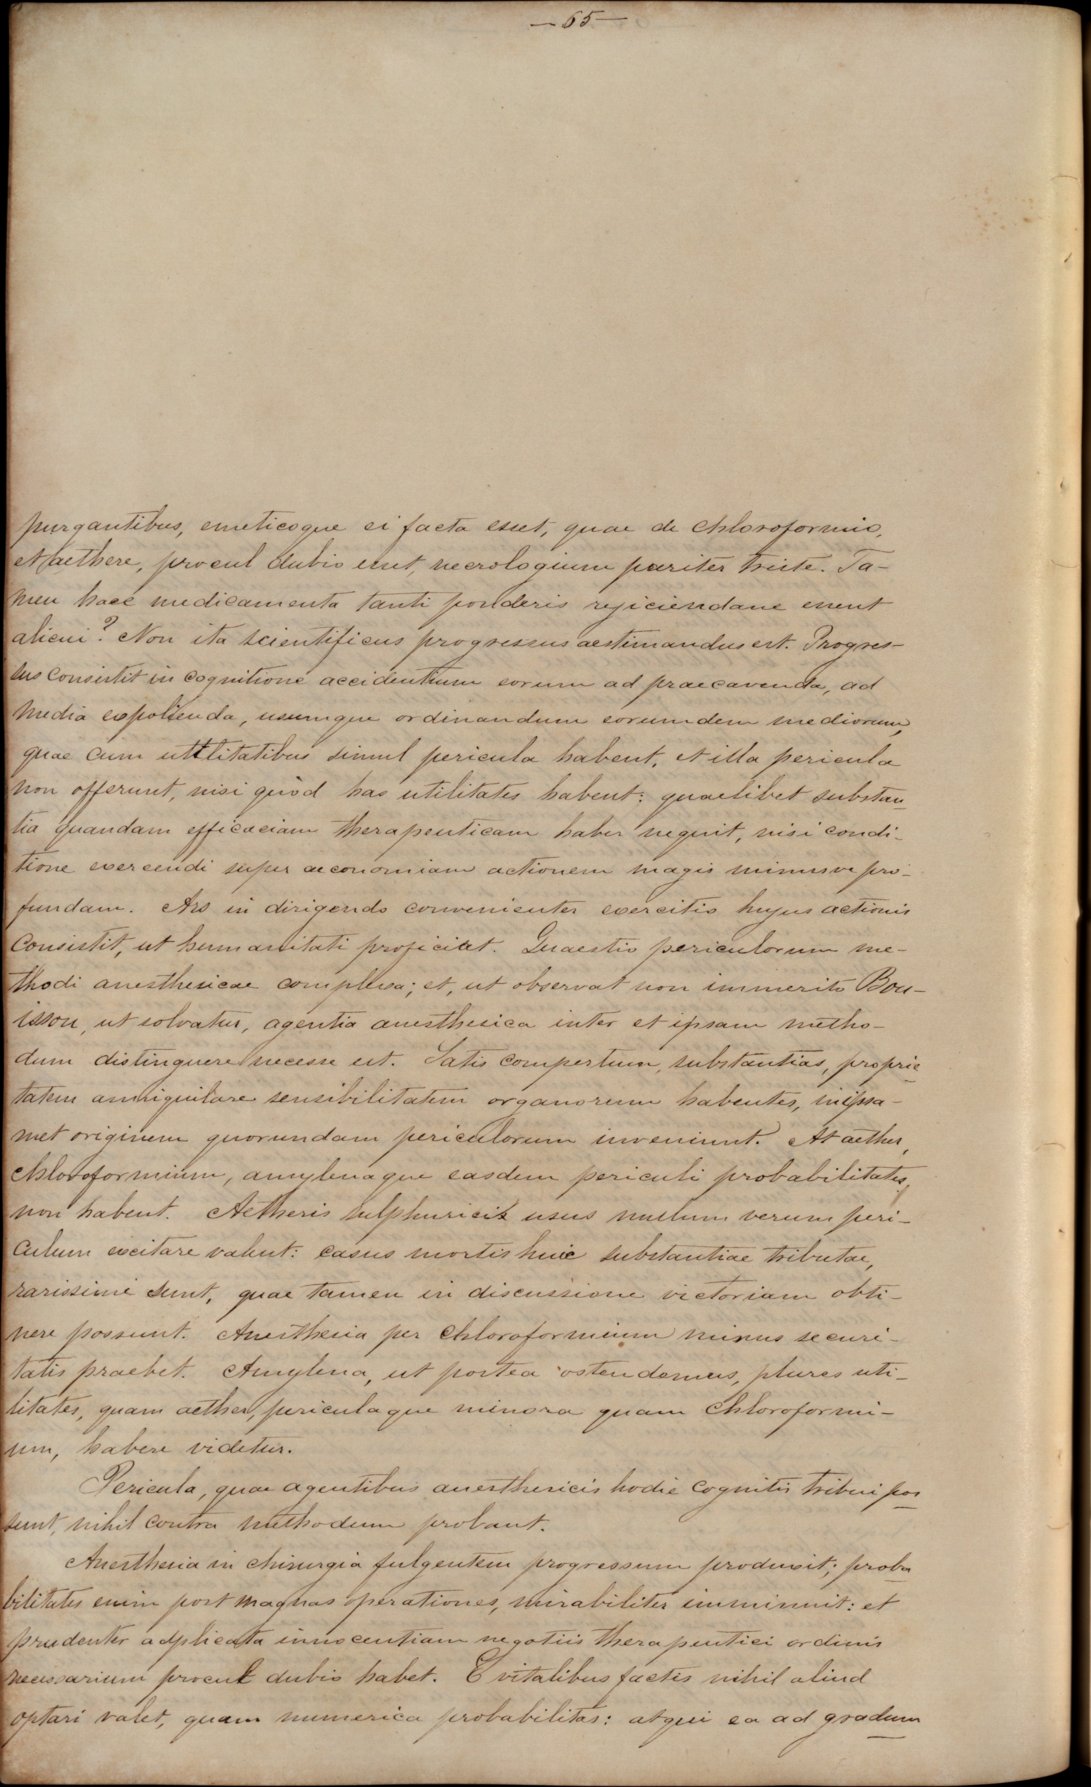 — 65 —
purgantibus, emeticoque si facta esset, quae de chloroformio,
et aethere, procul dubio esset, necrologium pariter triste. Ta-
men haec medicamenta tanti ponderis rejiciendane essent
alicui? Non ita scientificus progressus aestimandus est. Progres-
sus consistit in cognitione accidentium eorum ad praecavenda, ad
media expolienda, usumque ordinandum eorumdem mediorum,
quae cum utilitatibus simul pericula habent, et illa pericula
non offerunt, nisi quòd has utilitates habent: quaelibet substan
tia quandam efficaciam therapeuticam haber nequit, nisi condi-
tione exercendi super aeconomiam actionem magis minusve pro-
fundam. Ars in dirigendo convenienter exercitio hujus actionis
consistit, ut humanitati proficiat. Quaestio periculorum me-
thodi anesthesicae complexa; et, ut observat non immerito Bou-
isson, ut solvatur, agentia anesthesica inter et ipsam metho-
dum distinguere necesse est. Satis compertum, substantias, proprie
tatem anniquilare sensibilitatem organorum habentes, in ipsa-
met originem quorundam periculorum inveniunt. At aether,
chloroformium, amylenaque easdem periculi probabilitates,
non habent. Aetheris sulphurici usus nullum verum peri-
culum excitare valent: casus mortis huic substantiae tributae,
rarissimi sunt, quae tamen in discussione victoriam obti-
nere possunt. Anesthesia per chloroformium minus securi-
tatis praebet. Amylena, ut postea ostendemus, plures uti-
litates, quam aether, periculaque minora quam chloroformi-
um, habere videtur.
Pericula, quae agentibus anesthesicis hodie cognitis tribui pos
sunt, nihil contra methodum probant.
Anesthesia in chirurgia fulgentem progressum produxit; proba
bilitates enim post magnas operationes, mirabiliter imminuit: et
prudenter adplicata innocentiam negotiis therapeutici ordinis
necessarium procul dubio habet. E vitalibus factis nihil aliud
optari valet, quam numerica probabilitas: atqui ea ad gradum